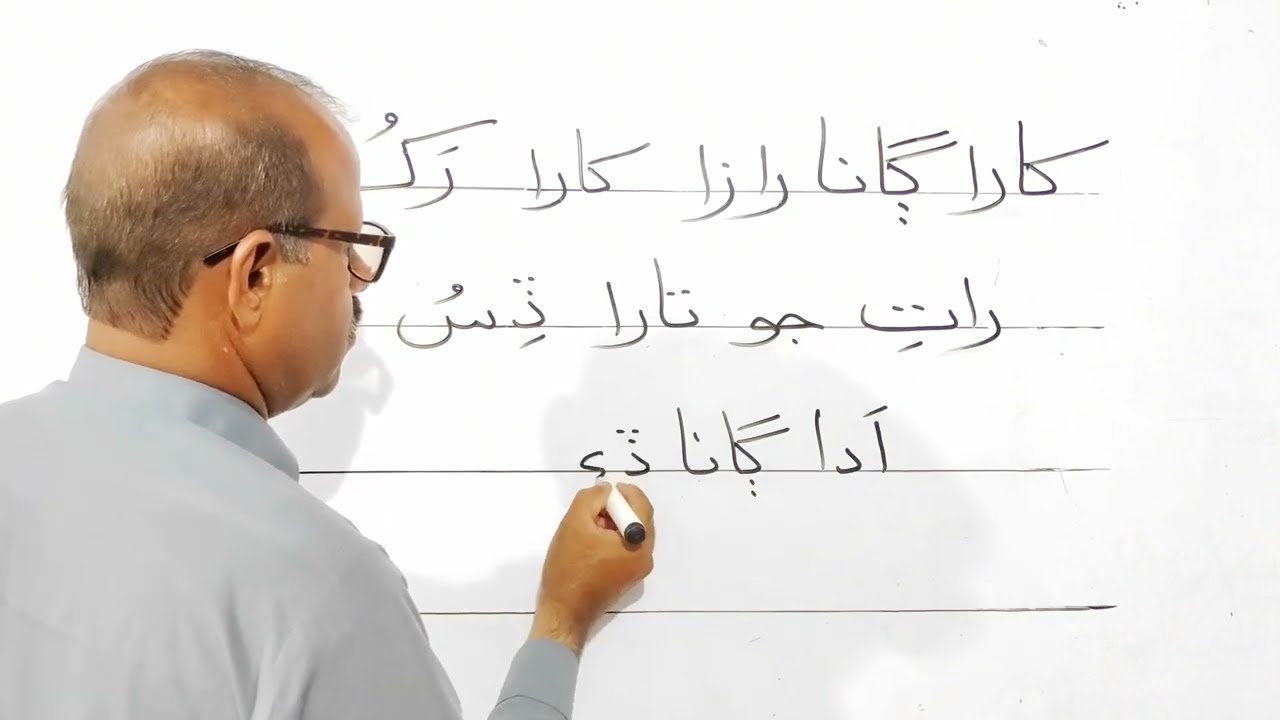 کارا ڳانا رازا کارا رَکُ
راتِ جو تارا ڏِسُ
اَدا ڳانا